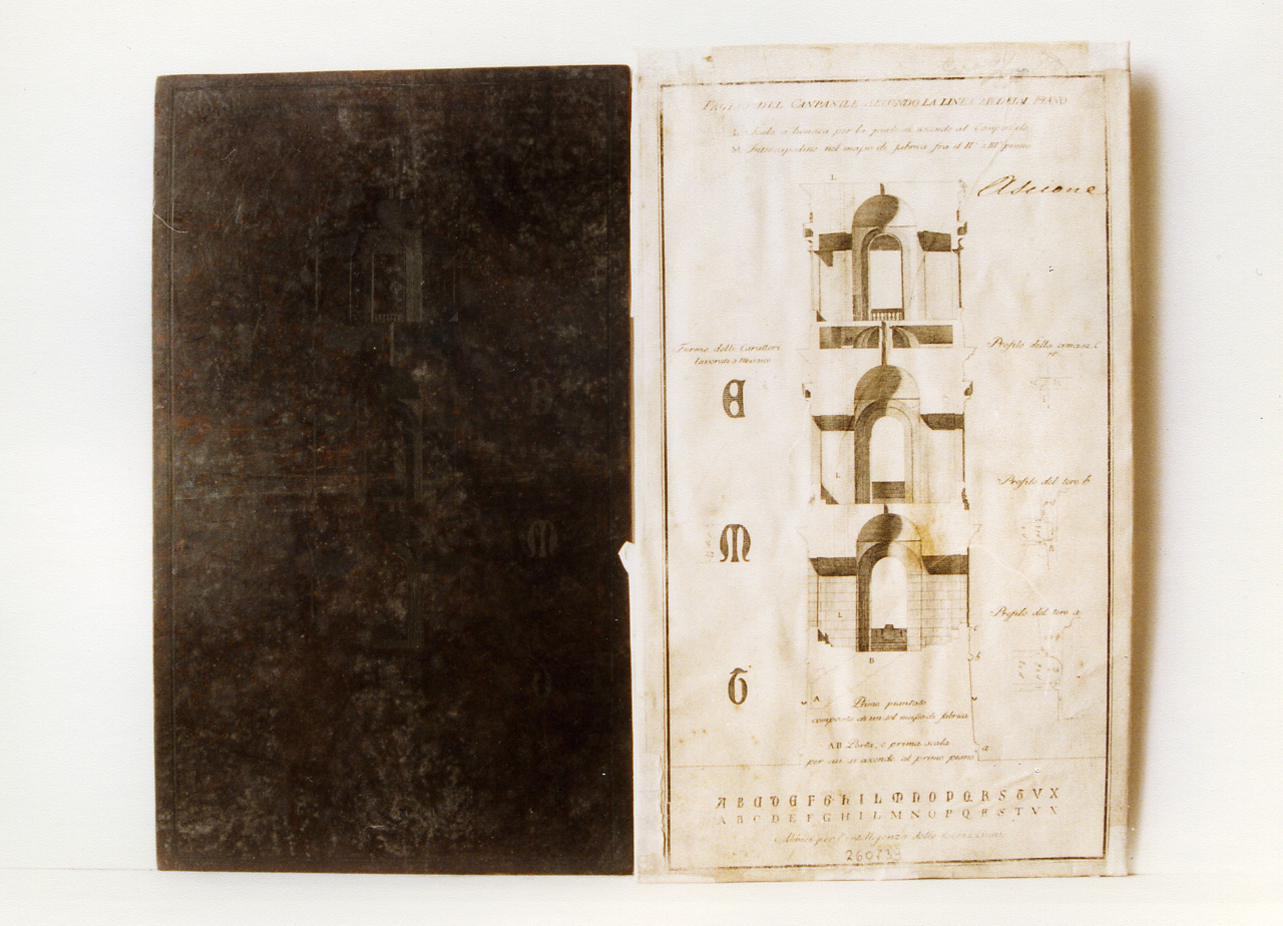 DEL CANPANILE SECONDO LA LINEA DEL PIANO
L. Scala a lumaca per la quale si ascende al Campanile
M. Intercapedine nel masso di fabrica fra il II° e III° piano
Ascione
L
Forme delli Caratteri
lavorati a Musaico
Profilo della cimasa C
E
M
L
Profilo del toro b
M
T
L
Profilo del toro a
B
b
A
Primo piantato
composto di un sol masso di fabrica
AB Porta, e prima scala
per cui si ascende al primo piano
a
A B C D E F G H I L M N O P Q R S T V X
A B C D E F G H I L M N O P Q R S T V X
per l'intelligenza delle
260733